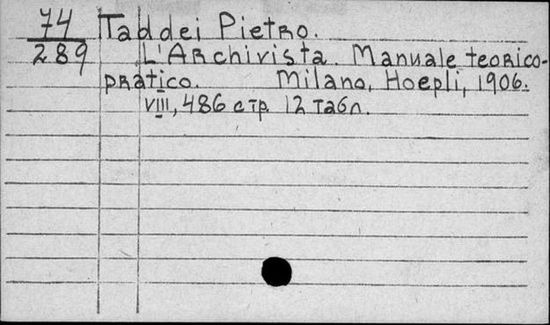 74 Taddei Pietro.
289 L'Archivista. Manuale teorico-
pratico. Milano, Hoepli, 1906.
VIII, 486 стр. 12 табл.